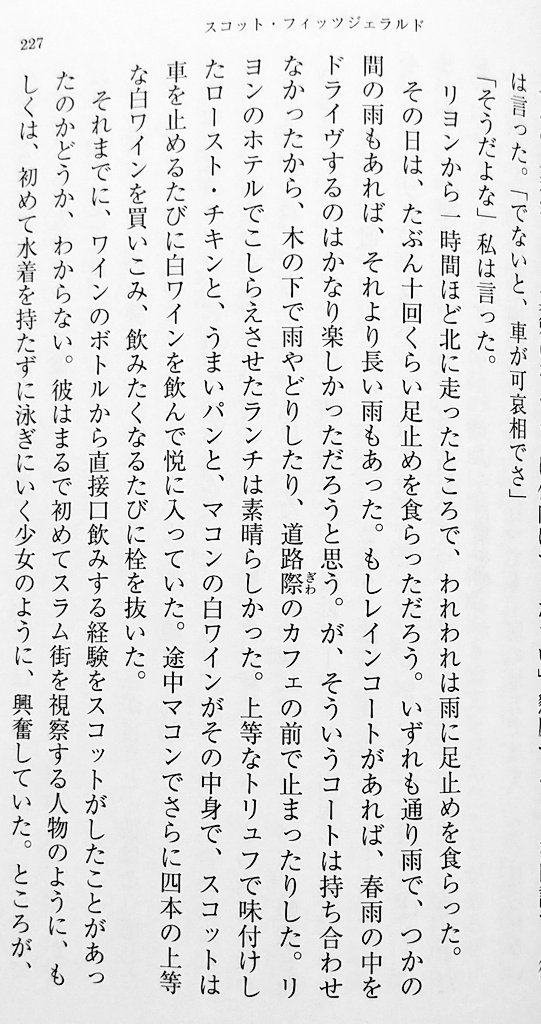 スコット・フィッツジェラルド
227
は言った。「でないと、車が可哀相でさ」
「そうだよな」私は言った。
リヨンから一時間ほど北に走ったところで、われわれは雨に足止めを食らった。
その日は、たぶん十回くらい足止めを食らっただろう。いずれも通り雨で、つかの
間の雨もあれば、それより長い雨もあった。もしレインコートがあれば、春雨の中を
ドライヴするのはかなり楽しかっただろうと思う。が、そういうコートは持ち合わせ
なかったから、木の下で雨やどりしたり、道路際ぎわのカフェの前で止まったりした。リ
ヨンのホテルでこしらえさせたランチは素晴らしかった。上等なトリュフで味付けし
たロースト・チキンと、うまいパンと、マコンの白ワインがその中身で、スコットは
車を止めるたびに白ワインを飲んで悦に入っていた。途中マコンでさらに四本の上等
な白ワインを買いこみ、飲みたくなるたびに栓を抜いた。
それまでに、ワインのボトルから直接口飲みする経験をスコットがしたことがあっ
たのかどうか、わからない。彼はまるで初めてスラム街を視察する人物のように、も
しくは、初めて水着を持たずに泳ぎにいく少女のように、興奮していた。ところが、